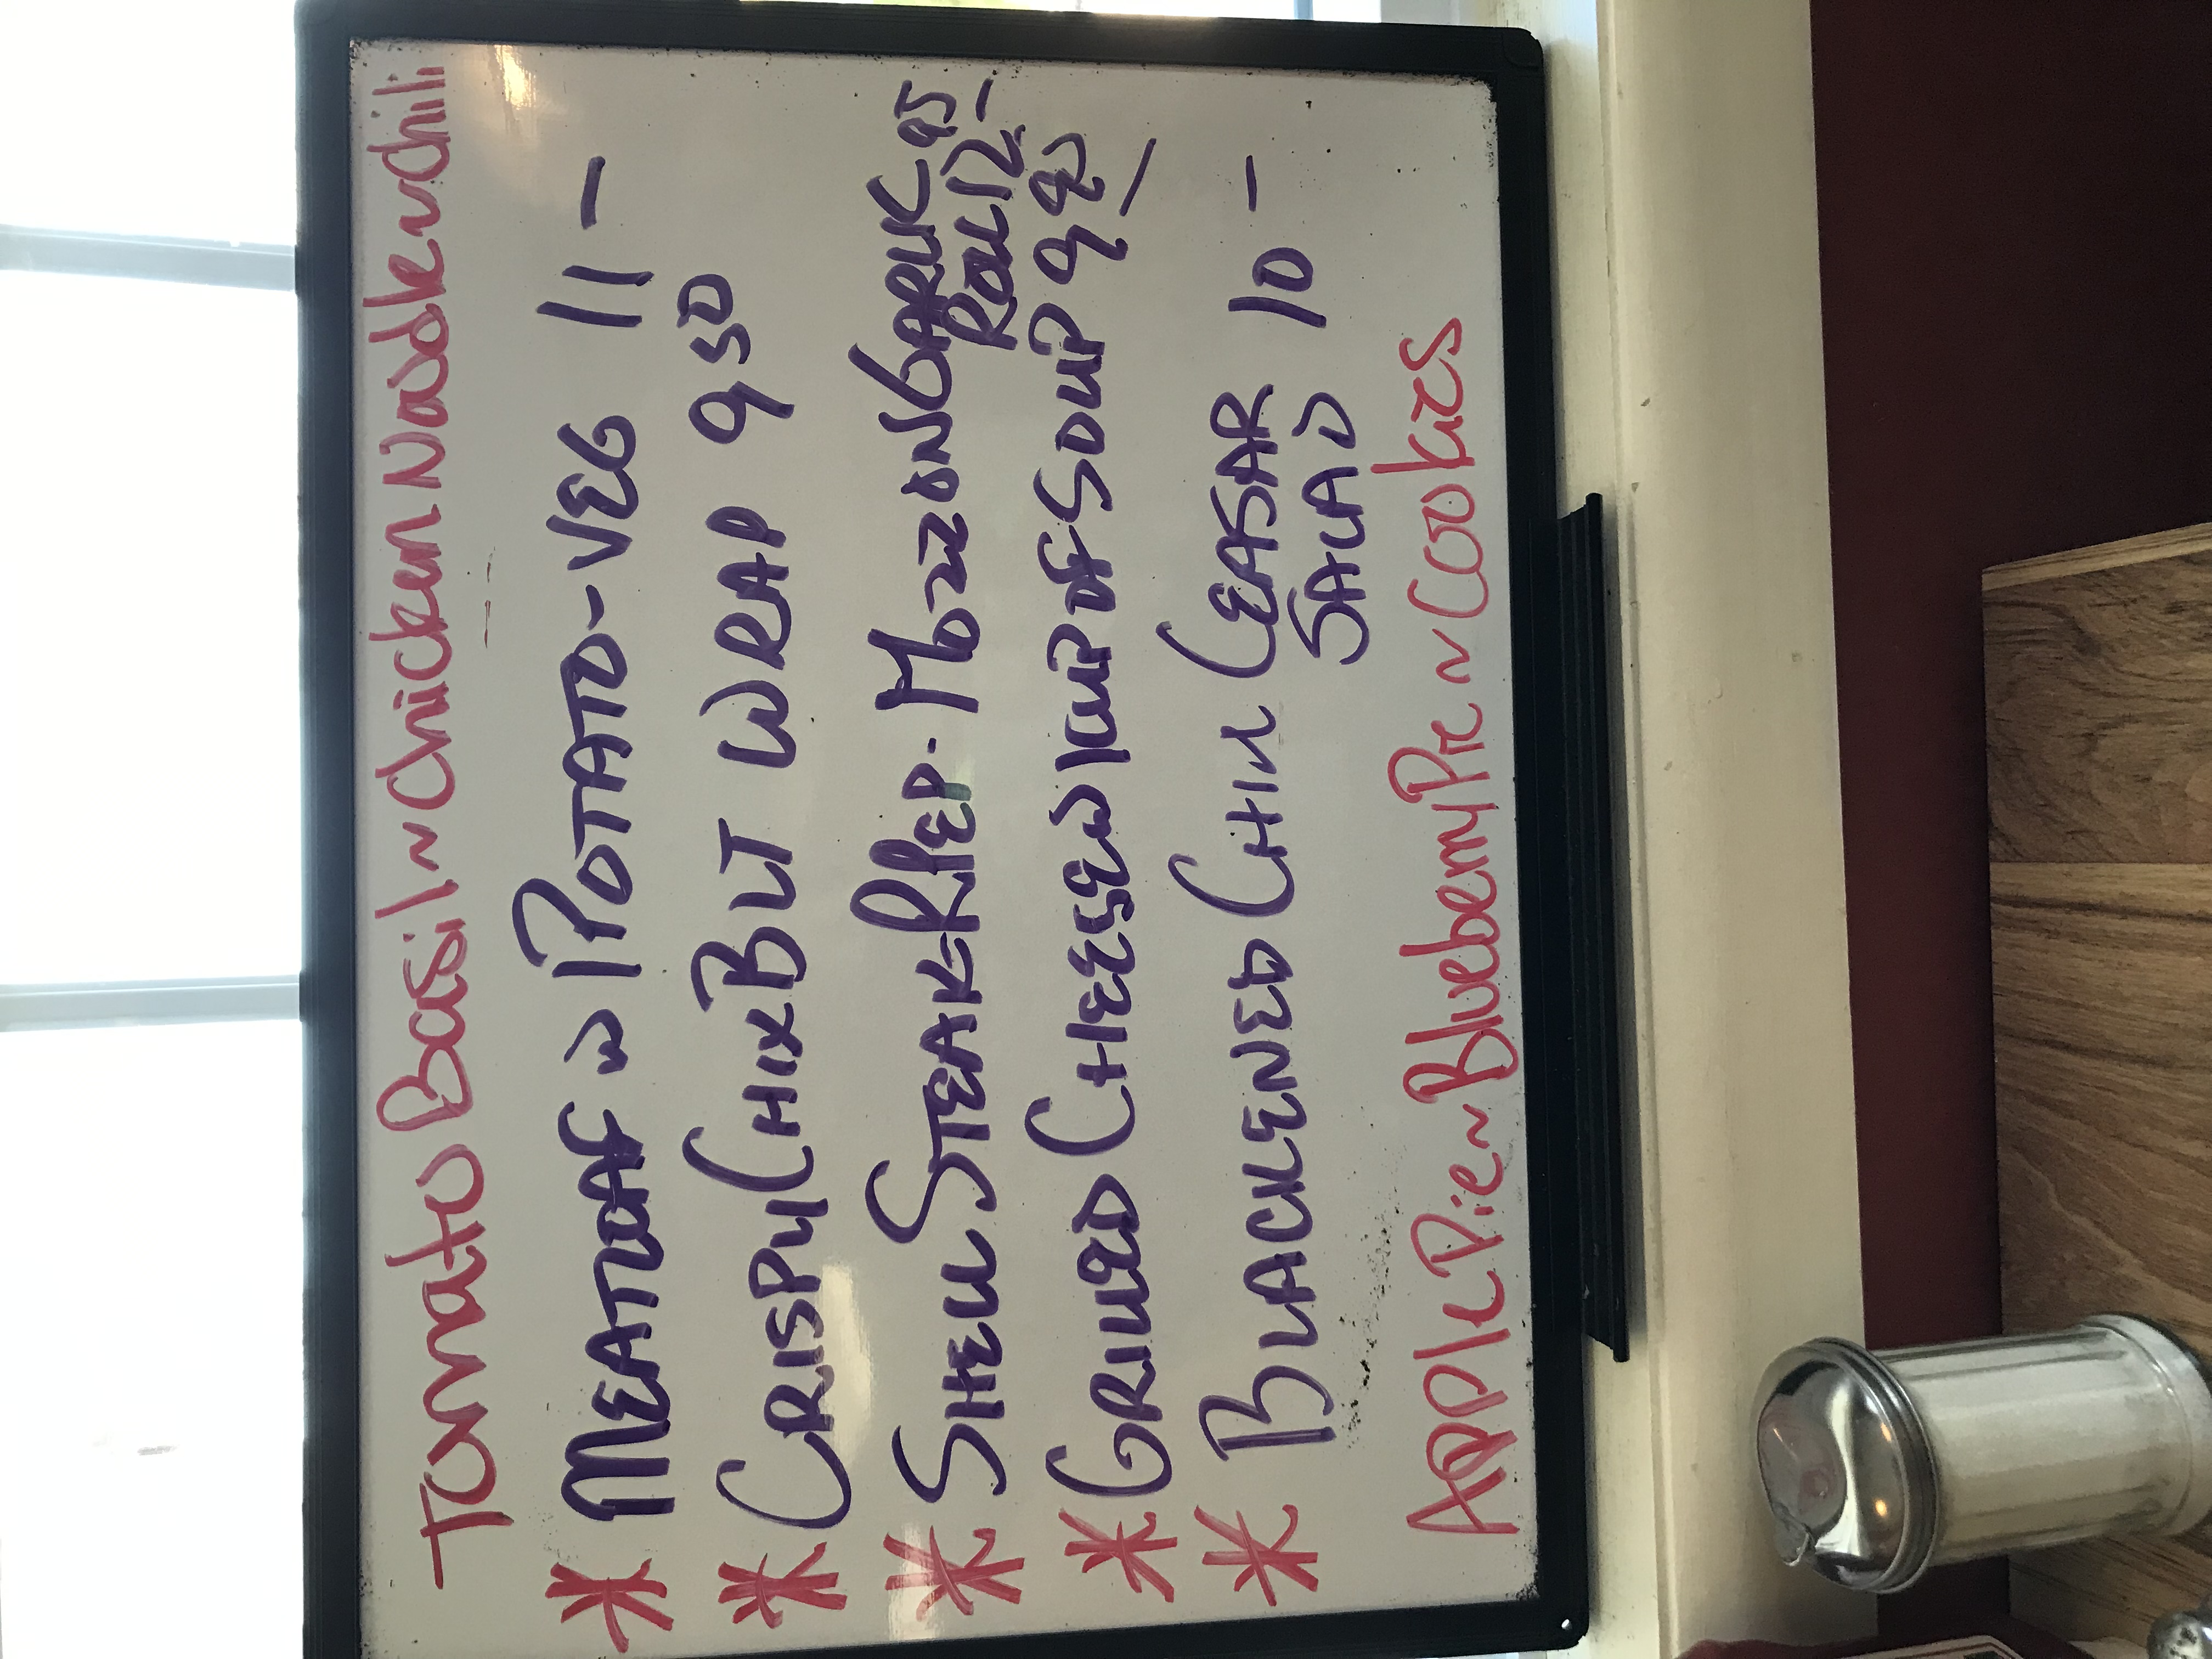 Tomato Basil ~ Chicken Noodle ~ Chili
* MEATLOAF w/ POTATO - VEG 11 -
* CRISPY CHIX BLT WRAP 9 50
* SHELL STEAK, PEP. MOZZ ON GARLIC
ROLL 12 95
* GRILLED CHEESE w/ CUP OF SOUP 9
* BLACKENED CHIX CEASAR 10 -
SALAD
Apple Pie ~ Blueberry Pie ~ Cookies